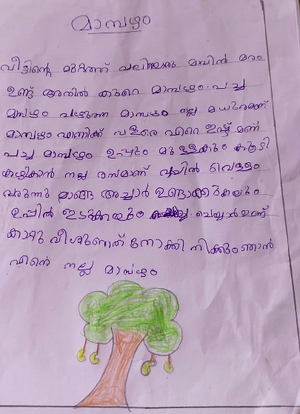 മാമ്പഴം
വീട്ടിന്റെ മുറ്റത്ത് വലിയൊരു മാവിൻ മരം
ഉണ്ട് അതിൽ കുറെ മാമ്പഴം പച്ച
മാമ്പഴം പഴുത്ത മാമ്പഴം നല്ല മധുരമാണ്
മാമ്പഴം എനിക്ക് വളരെ ഏറെ ഇഷ്ടമണ്
പച്ച മാമ്പഴം ഉപ്പും മുളകും കൂട്ടി
കഴിക്കാൻ നല്ല രസമാണ് വായിൽ വെള്ളം
വരുന്നു മാങ്ങ അച്ചാർ ഉണ്ടാക്കുകയും
ഉപ്പിൽ ഇടുകയും ചെയ്യാറുണ്ട്
കാറ്റു വീശുന്നത് നോക്കി നിക്കും ഞാൻ
നല്ല മാമ്പഴം